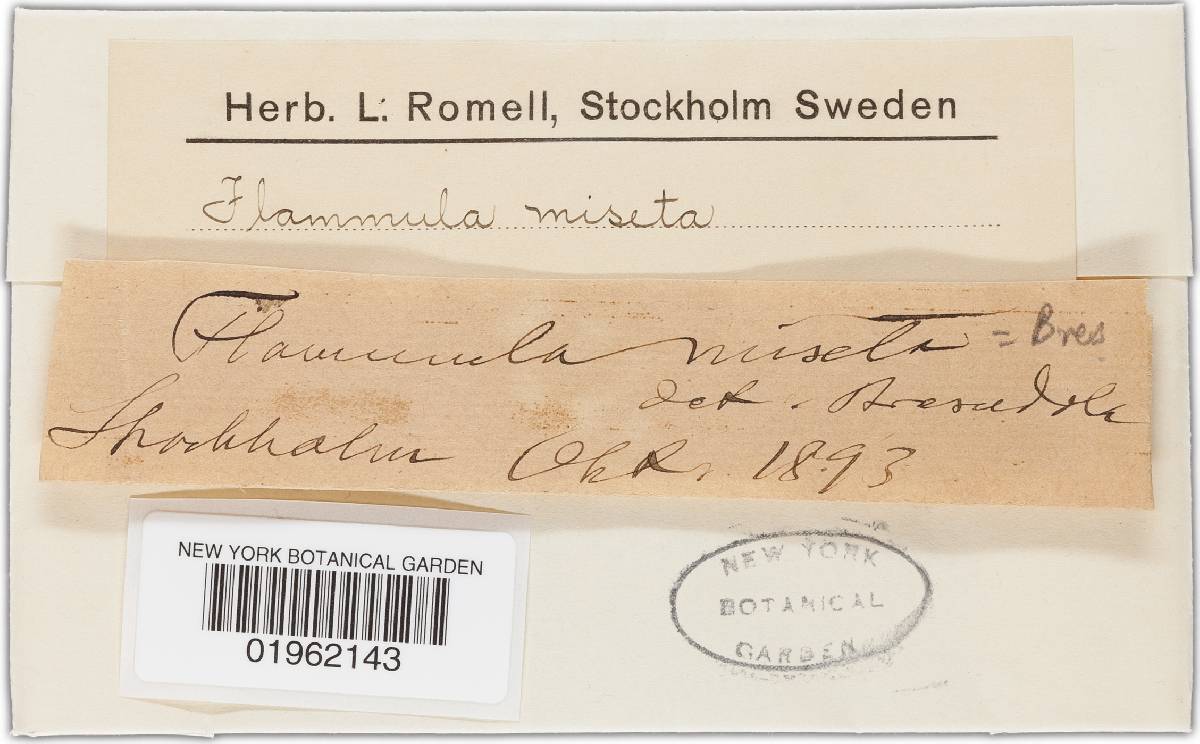 Herb. L: Romell, Stockholm Sweden
Flammula miseta
Flammula miseta = Bres
det. Bresadola
Stockholm Okt. 1893
NEW YORK BOTANICAL GARDEN
01962143
NEW YORK
BOTANICAL
GARDEN